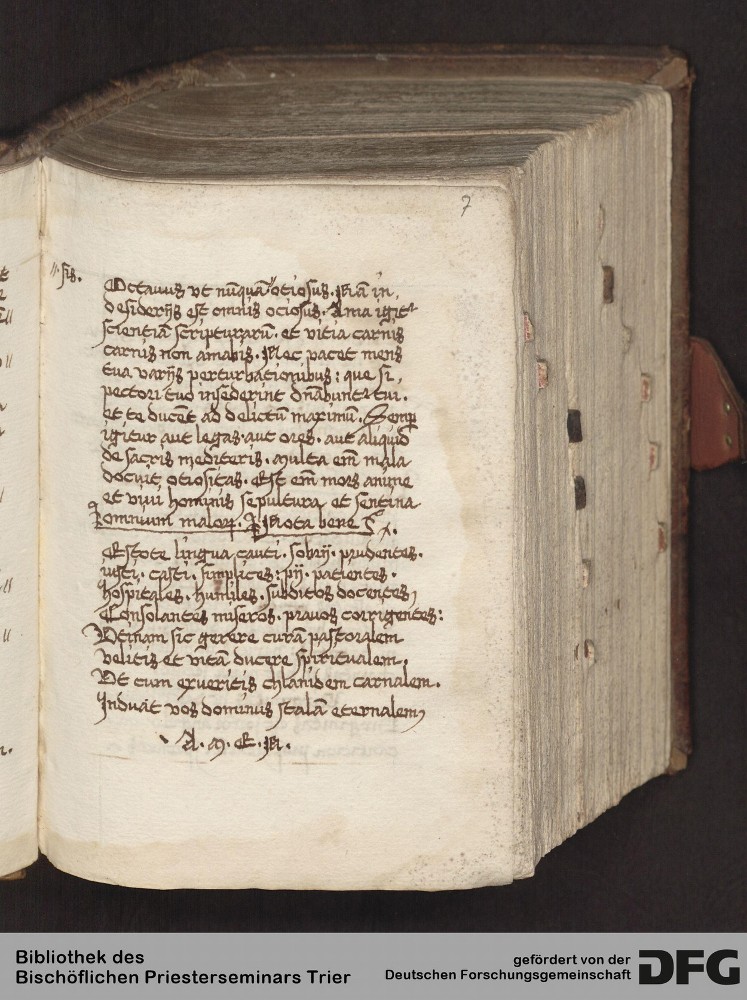 7
sis.
Octauus vt nūquā otiosus. Nā in,
desiderijs est omnis ociosus. Ama igitr
scientiā scripturarū. et vitia carnis
carnis non amabis. Nec pacet mens
tua varijs perturbationibus: que si,
pectori tuo insederint dn̄abunt tui.
et te ducēt ad delictū maximū. Semp
igitur aut legas. aut ores. aut aliquid
de sacris mediteris. multa em̄ mala
docuit otiositas. Est em̄ mors anime
et viui hominis sepultura et sentina
omnium maloꝝ. Nota bene
Estote lingua cauti. sobrij. prudentes.
iusti. casti. simplices: pij. patientes.
hospitales. humiles. subditos docentes,
Consolantes miseros. prauos corrigentes:
Vtinam sic gerere curā pastoralem
velitis et vitā ducere spiritualem,
Vt cum exueritis chlanidem carnalem.
Induāt vos dominus stolam eternalem,
A. M. E. N.
Bibliothek des
Bischöflichen Priesterseminars Trier
gefördert von der
Deutschen Forschungsgemeinschaft
DFG